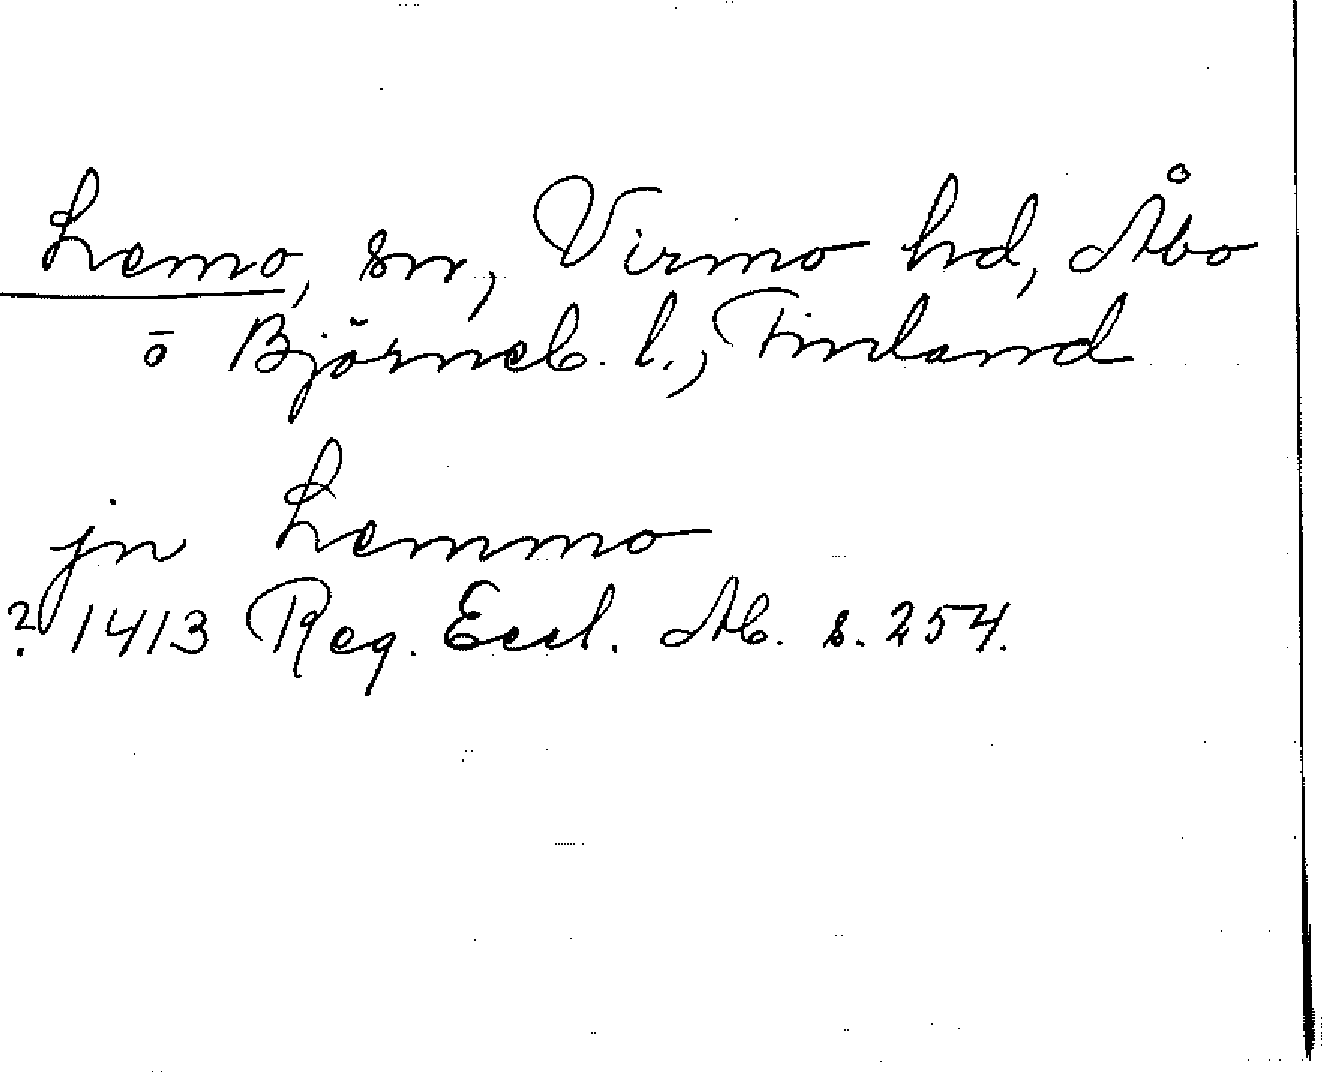 Lemo, sn, Virmo hd, Åbo
ō Björneb. l., Finland
jn Lemmo
? 1413 Reg. Eccl. Ab. s. 254.